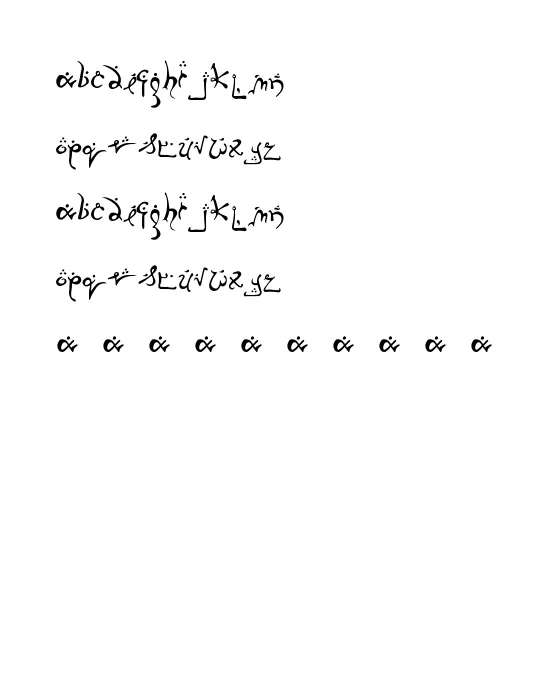 abcdefghijklmn
opqrstuvwxyz
abcdefghijklmn
opqrstuvwxyz
a a a a a a a a a a